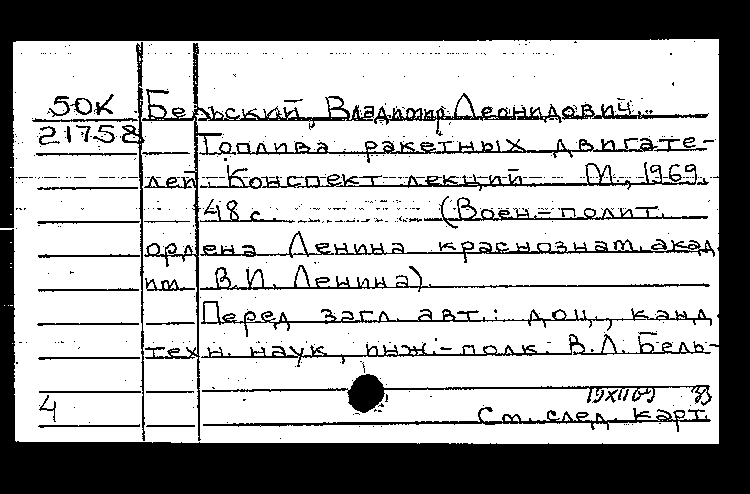 50К Бельский, Владимир Леонидович.
21758 Топлива ракетных двигате-
лей. Конспект лекций. М., 1969.
48 с. (Воен-полит.
ордена Ленина краснознам. акад.
им. В.И. Ленина).
Перед загл. авт.: доц., канд.
техн. наук, инж.-полк. В.Л. Бель-
19XII69
4 См. след. карт.